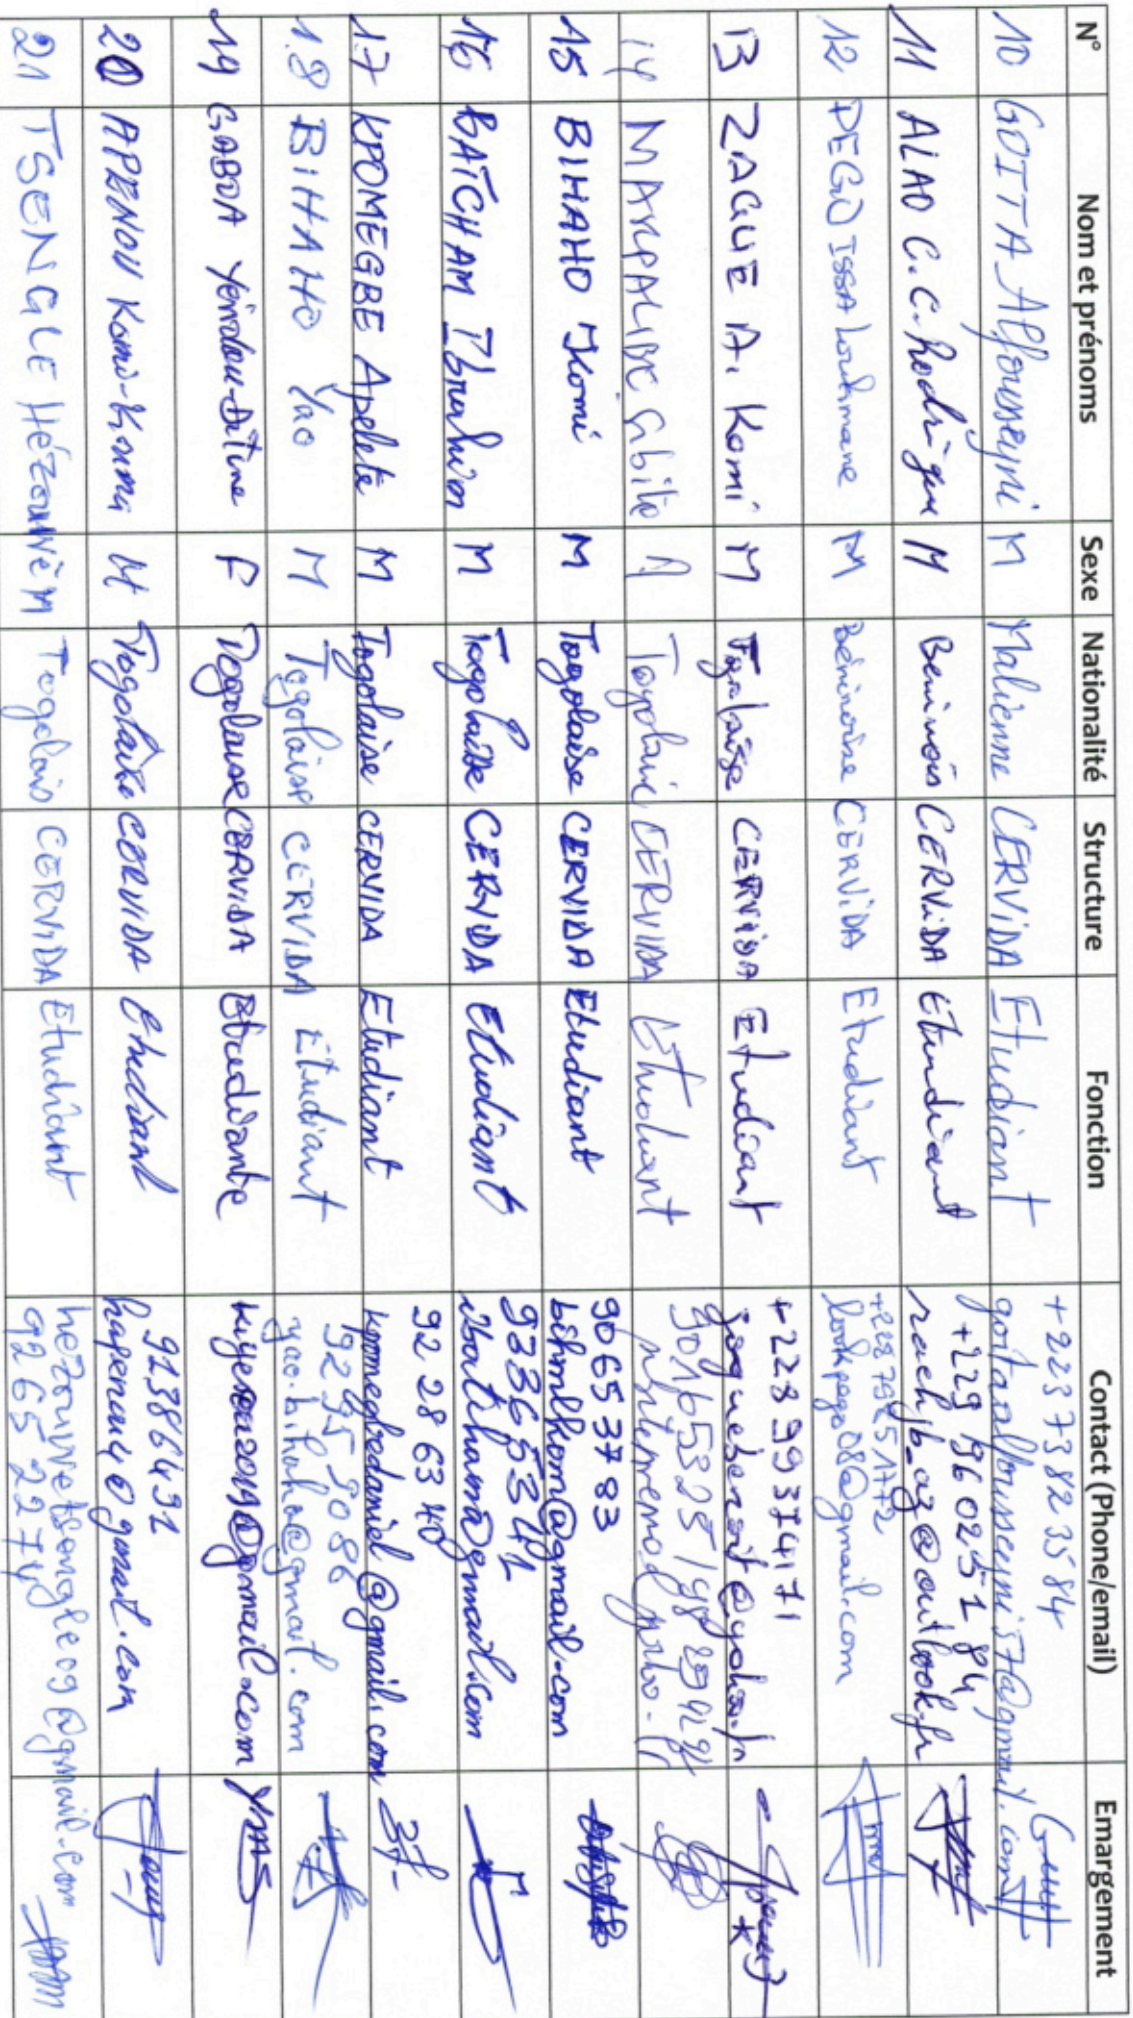 N° Nom et prénoms Sexe Nationalité Structure Fonction Contact (Phone/email) Emargement
10 GOITA Alfousseyni M Malienne CERVIDA Etudiant +223 73 82 35 84
goitaalfousseyni57@gmail.com
11 ALAO C.C. Rodrigue M Beninois CERViDA Etudiant +229 96 02 51 84
rachjb_az@outlook.fr
12 PEGO ISSA Loukmane M Béninoise CERViDA Etudiant
lookpego08@gmail.com
13 ZAGUE A. Komi M Togolaise CERVIDA Etudiant +228 99374171
zaguebenoit@yahoo.fr
14 Gbiliè Togolaise CERVIDA Etudiant
15 BIHAHO Komi M Togolaise CERVIDA Etudiant 90653783
bihmlkom@gmail.com
16 BATCHAM Ibrahim M Togolaise CERVIDA Etudiant 93365341
ibatihama@gmail.com
17 KPOMEGBE Apeleté M Togolaise CERVIDA Etudiant 92 28 63 40
kpomegbedaniel@gmail.com
18 BIHAHO Yao M Togolaise CERVIDA Etudiant 92959086
yao.bihaho@gmail.com
19 GABDA Yendou-Ditine F Togolaise CERVIDA Etudiante
20 APENOU Komi-Kouma M Togolaise CERVIDA Etudiant 91386431
hapenou@gmail.com
21 TSENGLE Hézouwèm Togolais CERVIDA Etudiant hezouwetsengle09@gmail.com
92652274